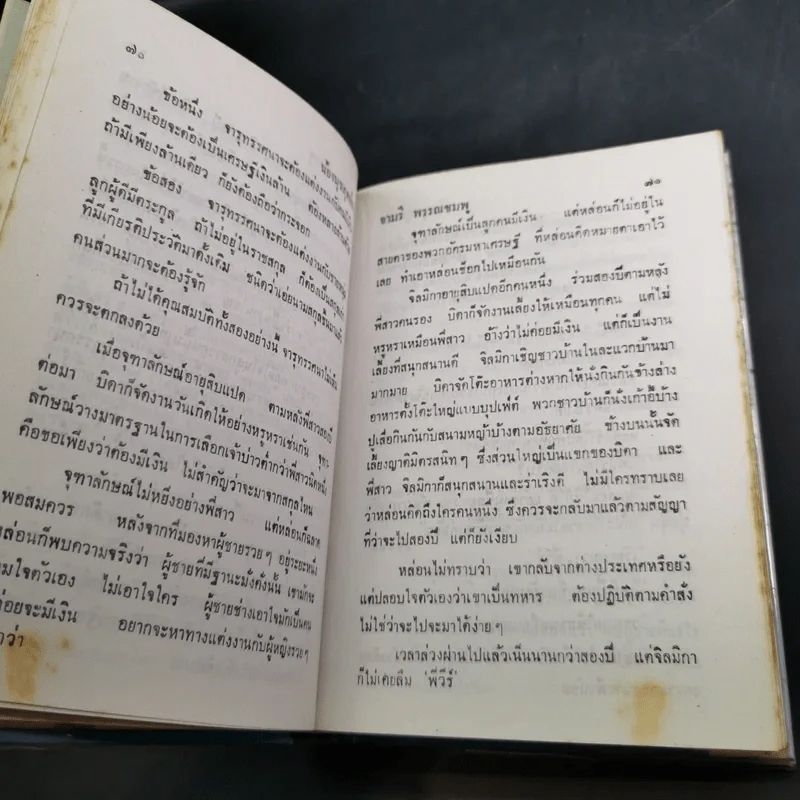 ๗๐
ข้อหนึ่ง จารุทรรศนาจะต้องแต่งงานกับ
อย่างน้อยจะต้องเป็นเศรษฐีเงินล้าน ต้องหลายล้าน
ถ้ามีเพียงล้านเดียว ก็ยังต้องถือว่ากระจอก
ข้อสอง จารุทรรศนาจะต้องแต่งงานกับ
ลูกผู้ดีมีตระกูล ถ้าไม่อยู่ในราชสกุล ก็ต้องเป็น
ที่มีเกียรติประวัติมาดั้งเดิม ชนิดว่าเอ่ยนามสกุล
คนส่วนมากจะต้องรู้จัก
ถ้าไม่ได้คุณสมบัติทั้งสองอย่างนี้ จารุทรรศนาไม่
ควรจะตกลงด้วย
เมื่อจุฑาลักษณ์อายุสิบแปด ตามหลังพี่สาวสองปี
ต่อมา บิดาก็จัดงานวันเกิดให้อย่างหรูหราเช่นกัน จุฑา-
ลักษณ์วางมาตรฐานในการเลือกเจ้าบ่าวต่ำกว่าพี่สาวนิดหนึ่ง
คือขอเพียงว่าต้องมีเงิน ไม่สำคัญว่าจะมาจากสกุลไหน
จุฑาลักษณ์ไม่หยิ่งอย่างพี่สาว แต่หล่อนก็ฉลาด
พอสมควร หลังจากที่มองหาผู้ชายรวยๆ อยู่ระยะหนึ่ง
หล่อนก็พบความจริงว่า ผู้ชายที่มีฐานะมั่งคั่งนั้น เขามักจะ
ตามใจตัวเอง ไม่เอาใจใคร ผู้ชายช่างเอาใจมักเป็นคน
ไม่ค่อยจะมีเงิน อยากจะหาทางแต่งงานกับผู้หญิงรวยๆ
๗๑
จามรี พรรณชมพู
จุฑาลักษณ์เป็นลูกคนมีเงิน แต่หล่อนก็ไม่อยู่ใน
สายตาของพวกอัครมหาเศรษฐี ที่หล่อนคิดหมายตาเอาไว้
เลย ทำเอาหล่อนช็อกไปเหมือนกัน
จิลมิกาอายุสิบแปดอีกคนหนึ่ง ร่วมสองปีตามหลัง
พี่สาวคนรอง บิดาก็จัดงานเลี้ยงให้เหมือนทุกคน แต่ไม่
หรูหราเหมือนพี่สาว อ้างว่าไม่ค่อยมีเงิน แต่ก็เป็นงาน
เลี้ยงที่สนุกสนานดี จิลมิกาเชิญชาวบ้านในละแวกบ้านมา
มากมาย บิดาจัดโต๊ะอาหารต่างหากให้นั่งกินกันข้างล่าง
อาหารตั้งโต๊ะใหญ่แบบบุปเฟ่ต์ พวกชาวบ้านก็นั่งเก้าอี้บ้าง
ปูเสื่อกินกันกับสนามหญ้าบ้างตามอัธยาศัย ข้างบนนั้นจัด
เลี้ยงญาติมิตรสนิทๆ ซึ่งส่วนใหญ่เป็นแขกของบิดา และ
พี่สาว จิลมิกาก็สนุกสนานและร่าเริงดี ไม่มีใครทราบเลย
ว่าหล่อนคิดถึงใครคนหนึ่ง ซึ่งควรจะกลับมาแล้วตามสัญญา
ที่ว่าจะไปสองปี แต่ก็ยังเงียบ
หล่อนไม่ทราบว่า เขากลับจากต่างประเทศหรือยัง
แต่ปลอบใจตัวเองว่าเขาเป็นทหาร ต้องปฏิบัติตามคำสั่ง
ไม่ใช่ว่าจะไปจะมาได้ง่ายๆ
เวลาล่วงผ่านไปแล้วเนิ่นนานกว่าสองปี แต่จิลมิกา
ก็ไม่เคยลืม ‘พี่วีร์’